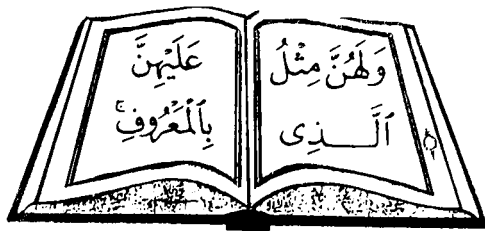 وَلَهُنَّ مِثْلُ
ٱلَّـــذِى
عَلَيْهِنَّ
بِٱلْمَعْرُوفِ ۚ